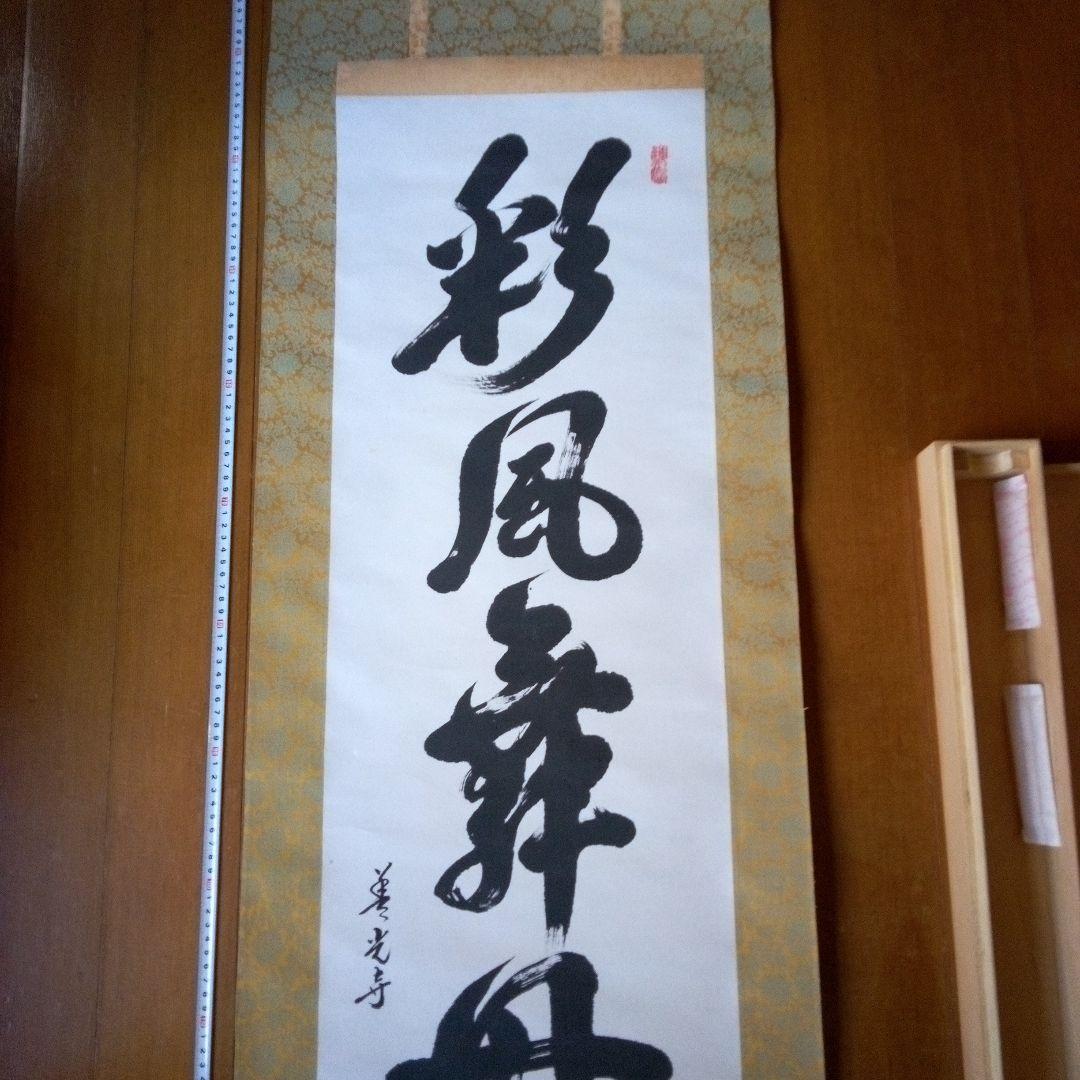 彩風舞丹
善光寺